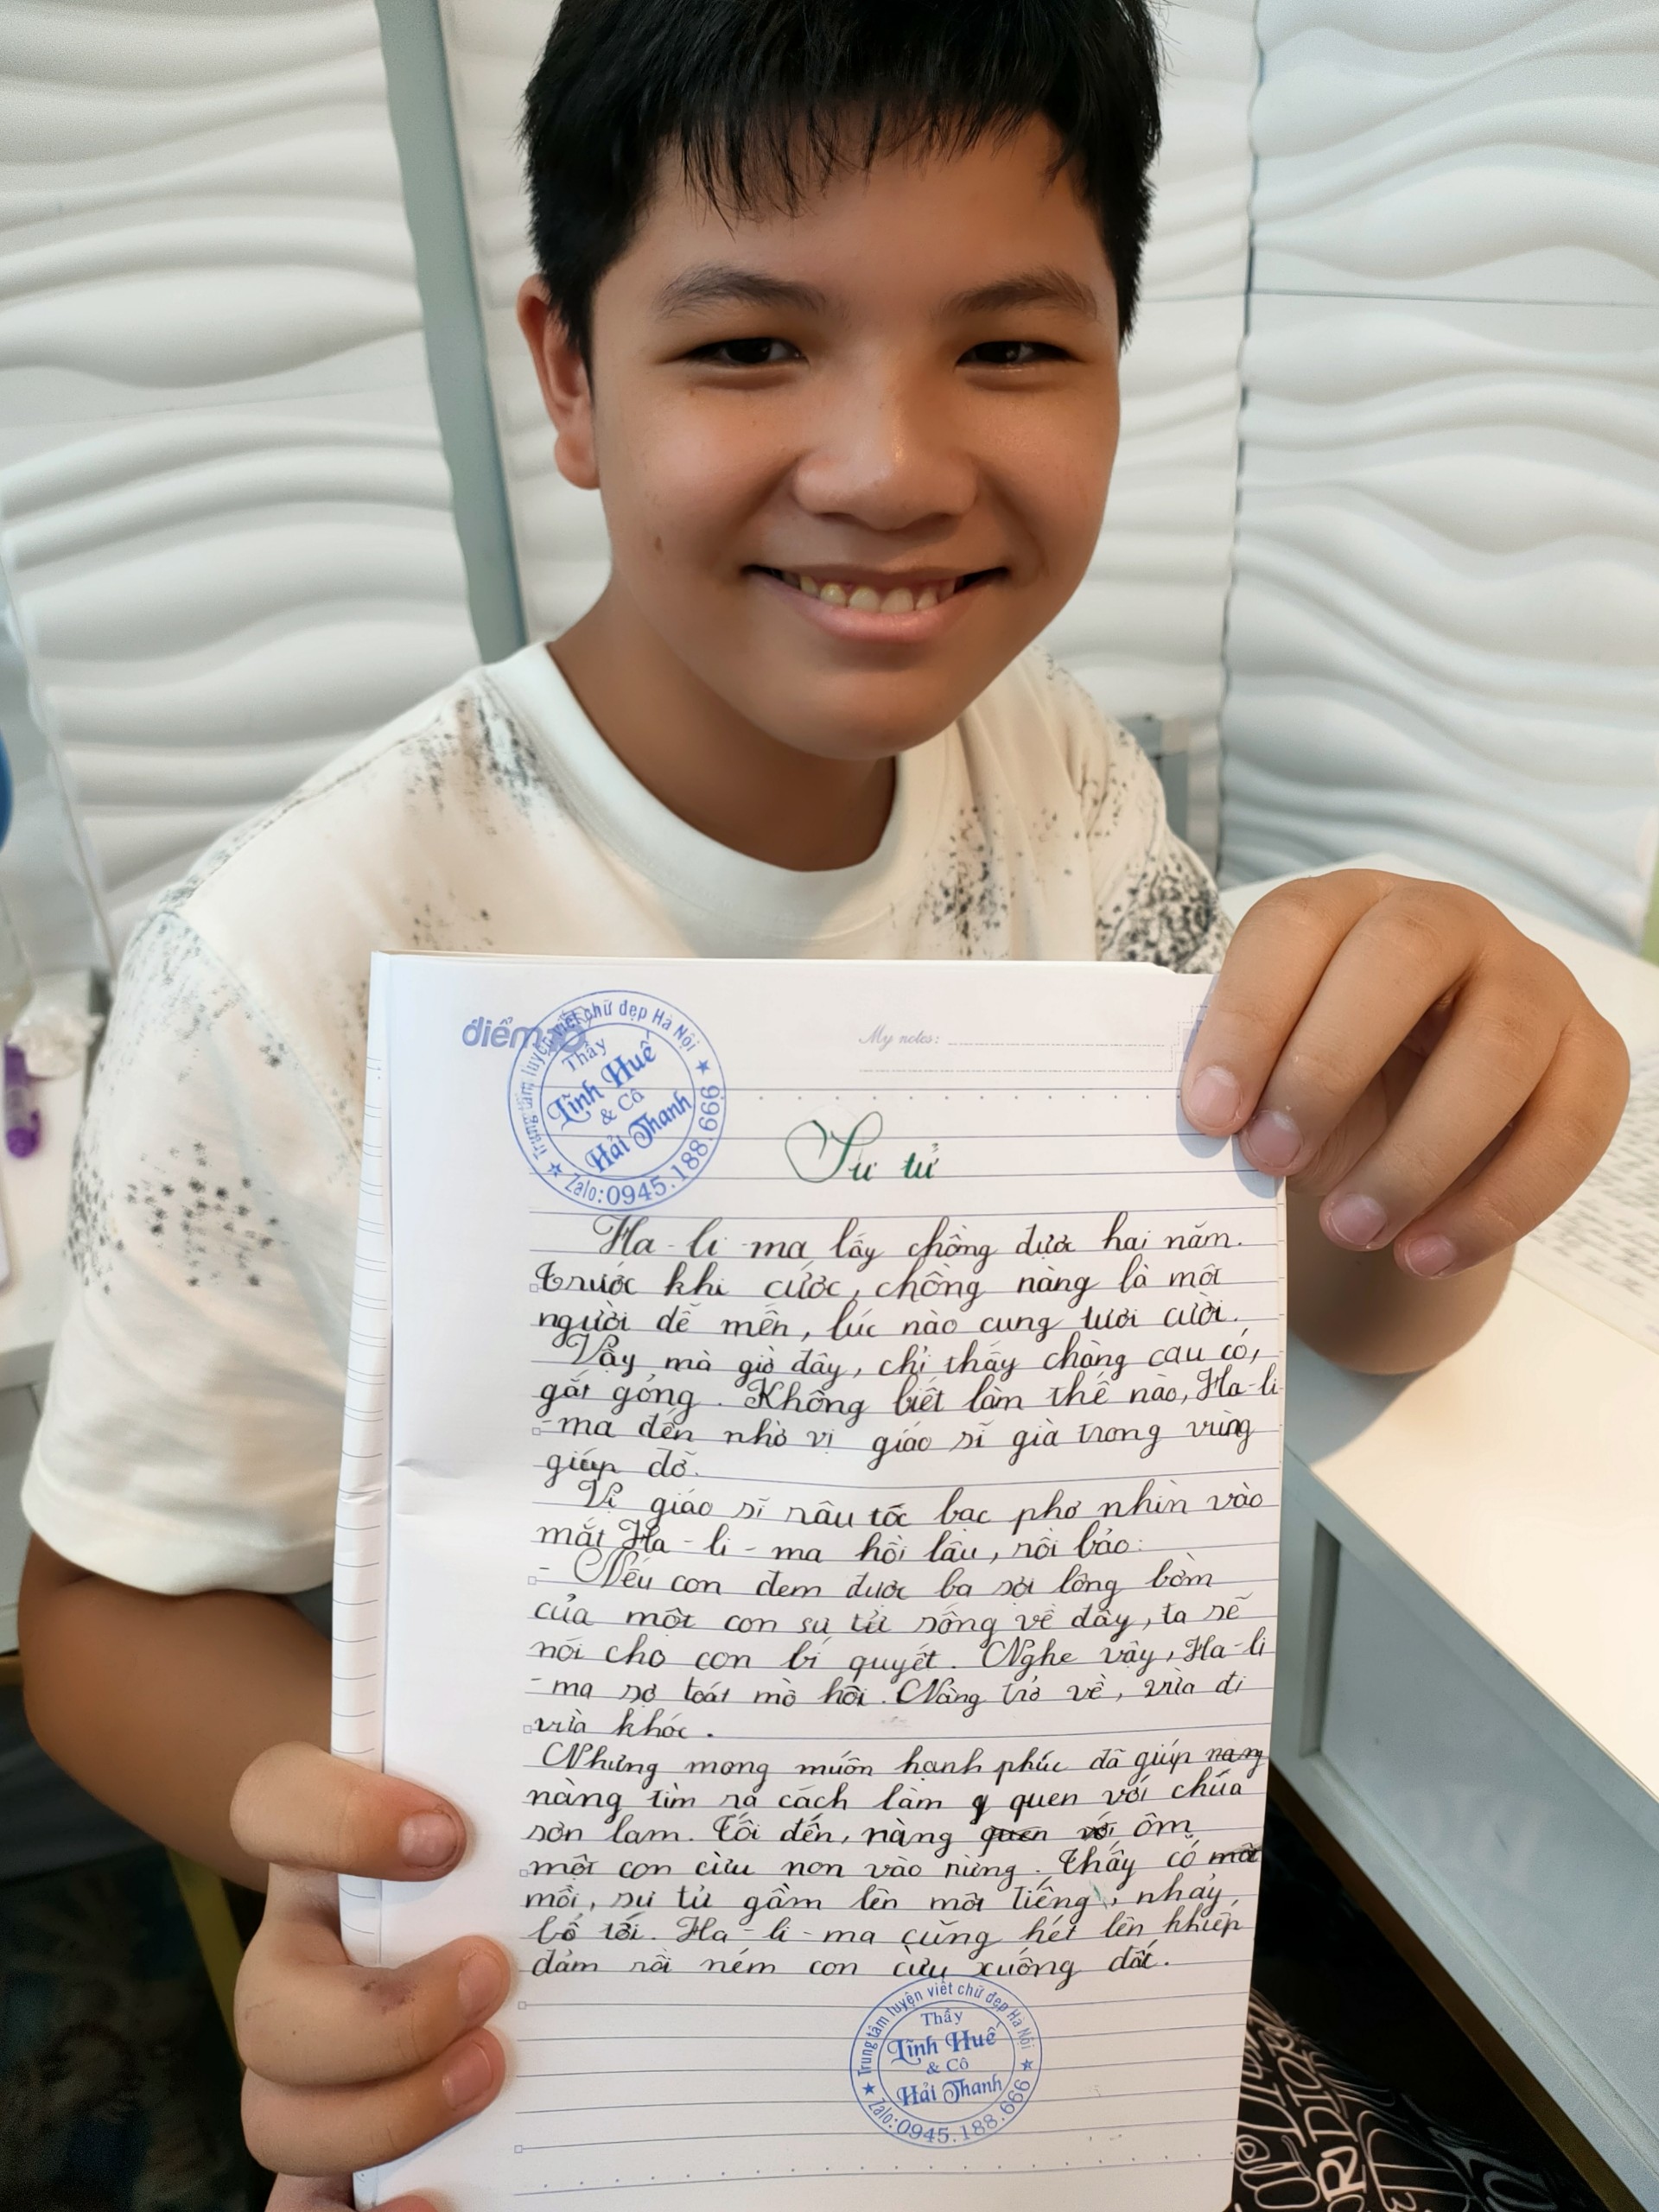 điểm 10
Trung tâm luyện viết chữ đẹp Hà Nội
Thầy
Lĩnh Huế
& Cô
Hải Thanh
Zalo: 0945.188.666
My notes:
Sư tử
Ha-li-ma lấy chồng được hai năm.
Trước khi cưới, chồng nàng là một
người dễ mến, lúc nào cung tươi cười.
Vậy mà giờ đây, chỉ thấy chàng cau có,
gắt gỏng. Không biết làm thế nào, Ha-li-
-ma đến nhờ vị giáo sĩ già trong vùng
giúp đỡ.
Vị giáo sĩ râu tóc bạc phơ nhìn vào
mắt Ha-li-ma hồi lâu, rồi bảo:
- Nếu con đem được ba sợi lông bờm
của một con sư tử sống về đây, ta sẽ
nói cho con bí quyết. Nghe vậy, Ha-li
-ma sợ toát mồ hôi. Nàng trở về, vừa đi
vừa khóc.
Nhưng mong muốn hạnh phúc đã giúp nang
nàng tìm ra cách làm q quen với chúa
sơn lam. Tối đến, nàng quen với ôm
một con cừu non vào rừng. Thấy có mồi
mồi, sư tử gầm lên một tiếng, nhảy
bổ tới. Ha-li-ma cũng hét lên khiếp
đảm rồi ném con cừu xuống đất.
Trung tâm luyện viết chữ đẹp Hà Nội
Thầy
Lĩnh Huế
& Cô
Hải Thanh
Zalo: 0945.188.666